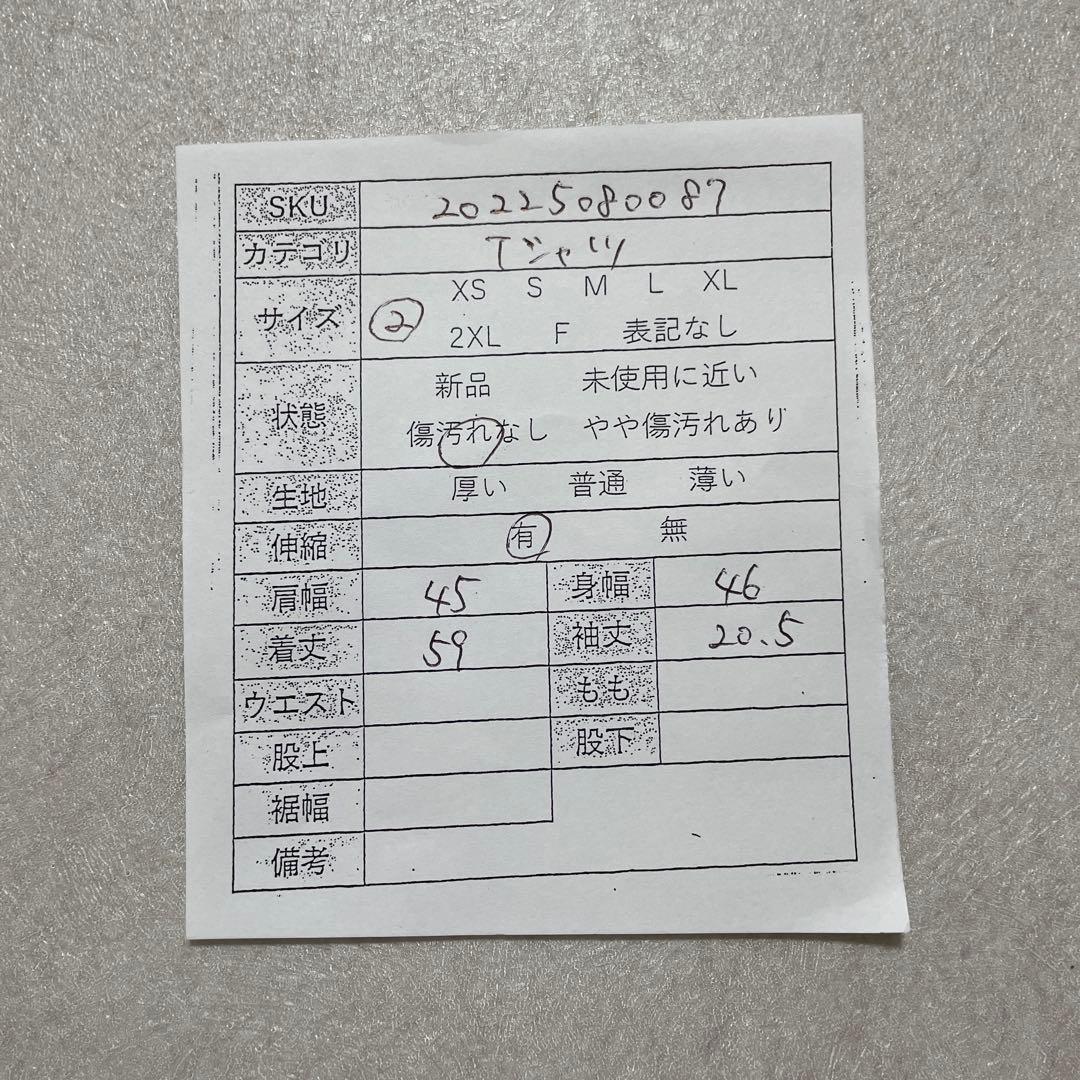 SKU 20225080087
カテゴリ Tシャツ
サイズ ② XS S M L XL
2XL F 表記なし
状態 新品 未使用に近い
傷汚れなし やや傷汚れあり
生地 厚い 普通 薄い
伸縮 有 無
肩幅 45 身幅 46
着丈 59 袖丈 20.5
ウエスト もも
股上 股下
裾幅
備考